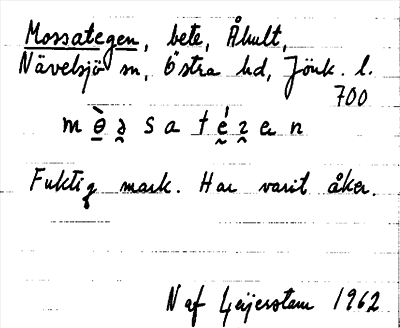 Mossategen, bete, Åhult,
Nävelsjö sn, Östra hd, Jönk. l.
700
Fuktig mark. Har varit åker.
N af Geijerstam 1962